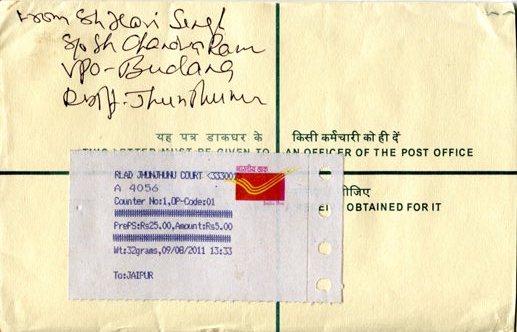 From Sh Hari Singh
S/o Sh Chandra Ram
VPO - Budana
Distt. Jhunjhunu
यह पत्र डाकघर के किसी कर्मचारी को ही दें
THIS LETTER MUST BE GIVEN TO AN OFFICER OF THE POST OFFICE
भारतीय डाक
RLAD JHUNJHUNU COURT <333001>
A 4056
Counter No:1,OP-Code:01
PrePS:Rs25.00,Amount:Rs5.00
Wt:32grams,09/08/2011 13:33
To:JAIPUR
OBTAINED FOR IT